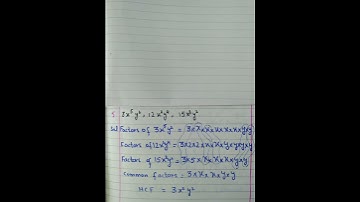 5. 3x⁵y², 12x²y², 15x²y²
Sol Factors of 3x⁵y² = 3×x×x×x×x×x×y×y
Factors of 12x²y² = 3×2×2×x×x×y×y
Factors of 15x²y² = 3×5×x×x×y×y
Common factors = 3×x×x×y×y
HCF = 3x²y²